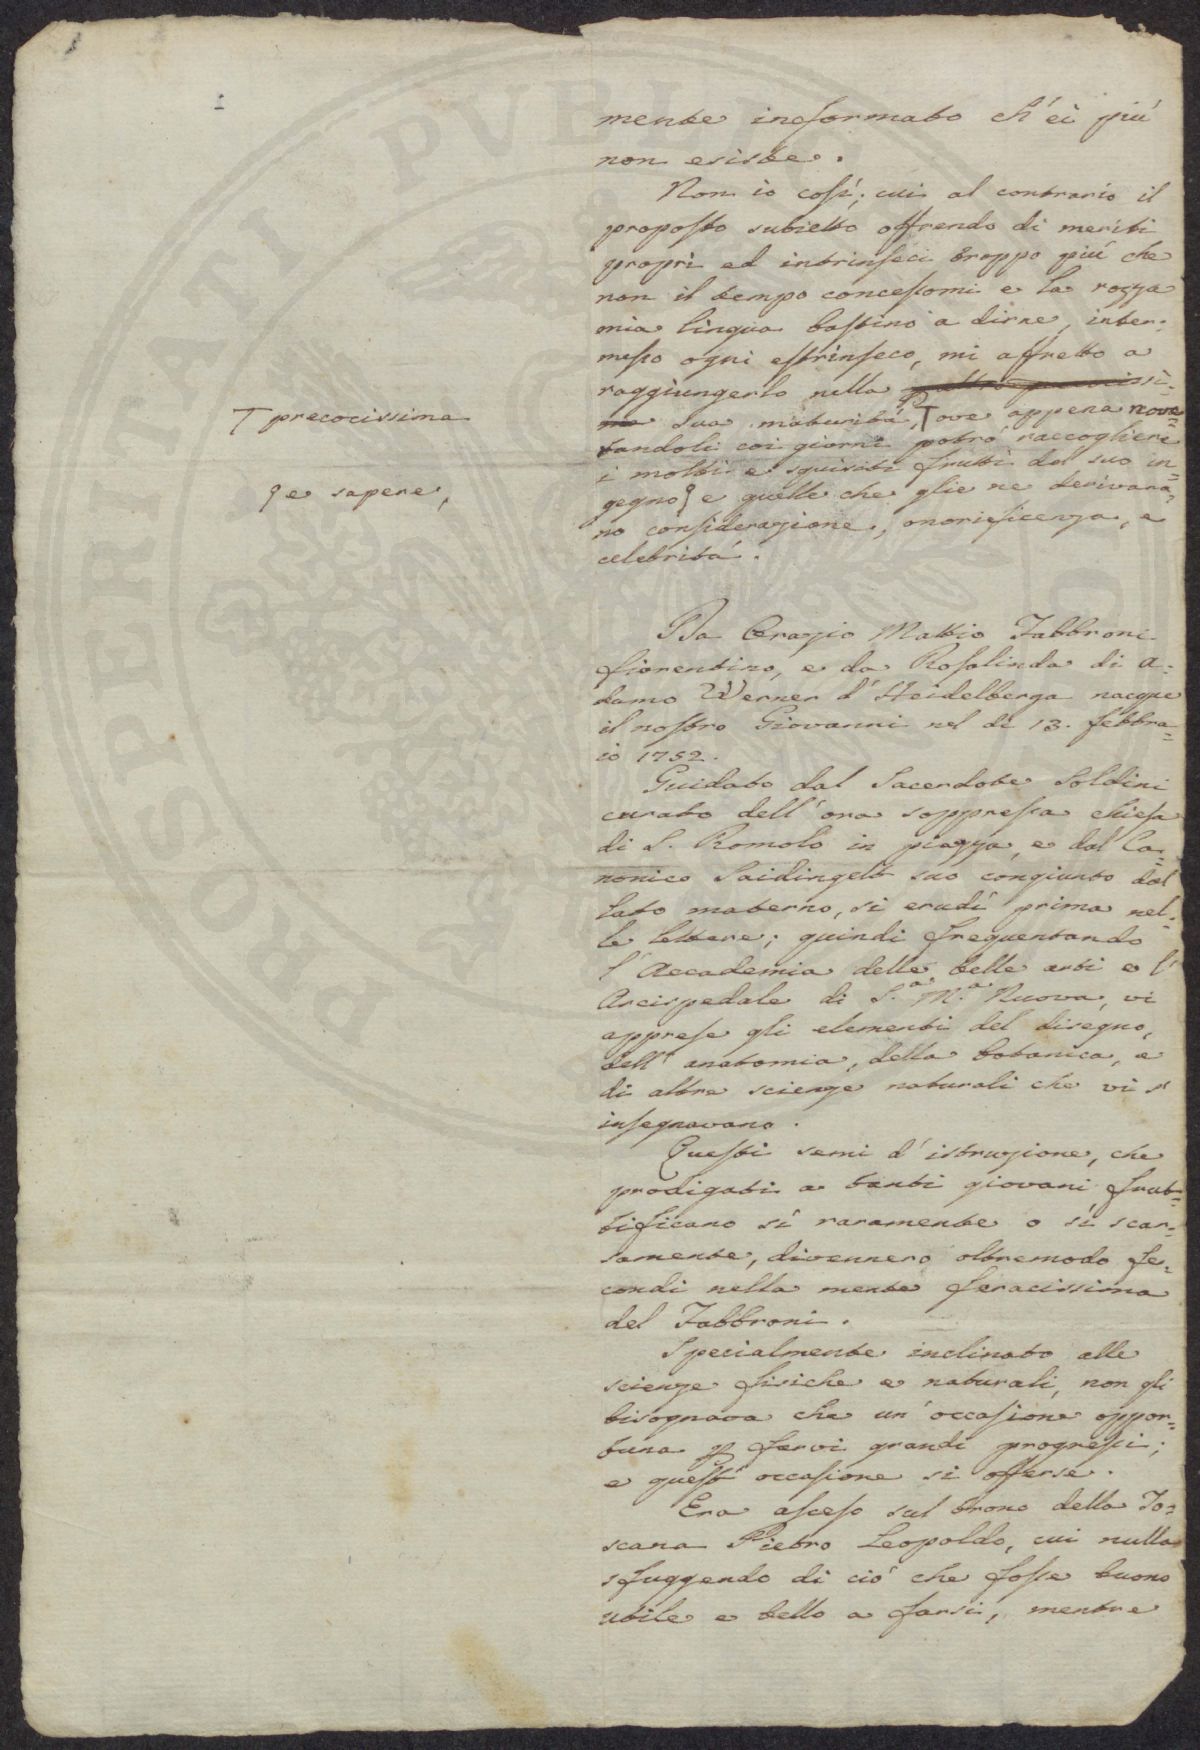 1
mente informato ch'ei più
non esiste.
Non io così; cui al contrario il
proposto subietto offrendo di meriti
proprj ed intrinseci troppo più che
non il tempo concessomi e la rozza
mia lingua bastino a dirne, inter-
messo ogni estrinseco, mi affretto a
raggiungerlo nella
sua maturità, T ove appena nove=
tandoli coi giorni potrò raccogliere
i molti e squisiti frutti del suo in=
gegno ʃ e quelle che glie ne derivaro=
no considerazione, onorificenza, e
celebrità.
T precocissima
ʃ e sapere,
Da Orazio Mattio Fabbroni
fiorentino, e da Rosalinda di A=
damo Werner d'Heidelberga nacque
il nostro Giovanni nel dì 13. febbra=
io 1752.
Guidato dal Sacerdote Soldini
curato dell'ora soppressa chiesa
di S. Romolo in piazza, e dal Ca=
nonico Saidingelt suo congiunto dal
lato materno, si erudì prima nel=
le lettere; quindi frequentando
l'Accademia delle belle arti e l'
Arcispedale di S.a M.a Nuova, vi
apprese gli elementi del disegno,
dell'anatomia, della botanica, e
di altre scienze naturali che vi s'
insegnavano.
Questi semi d'istruzione, che
prodigati a tanti giovani frut=
tificano sì raramente o sì scar=
samente, divennero oltremodo fe=
condi nella mente feracissima
del Fabbroni.
Specialmente inclinato alle
scienze fisiche e naturali, non gli
bisognava che un'occasione oppor=
tuna p farvi grandi progressi;
e quest'occasione si offerse.
Era asceso sul trono della To=
scana Pietro Leopoldo, cui nulla
sfuggendo di ciò che fosse buono
utile e bello a farsi, mentre
PROSPERITATI PVBLICAE